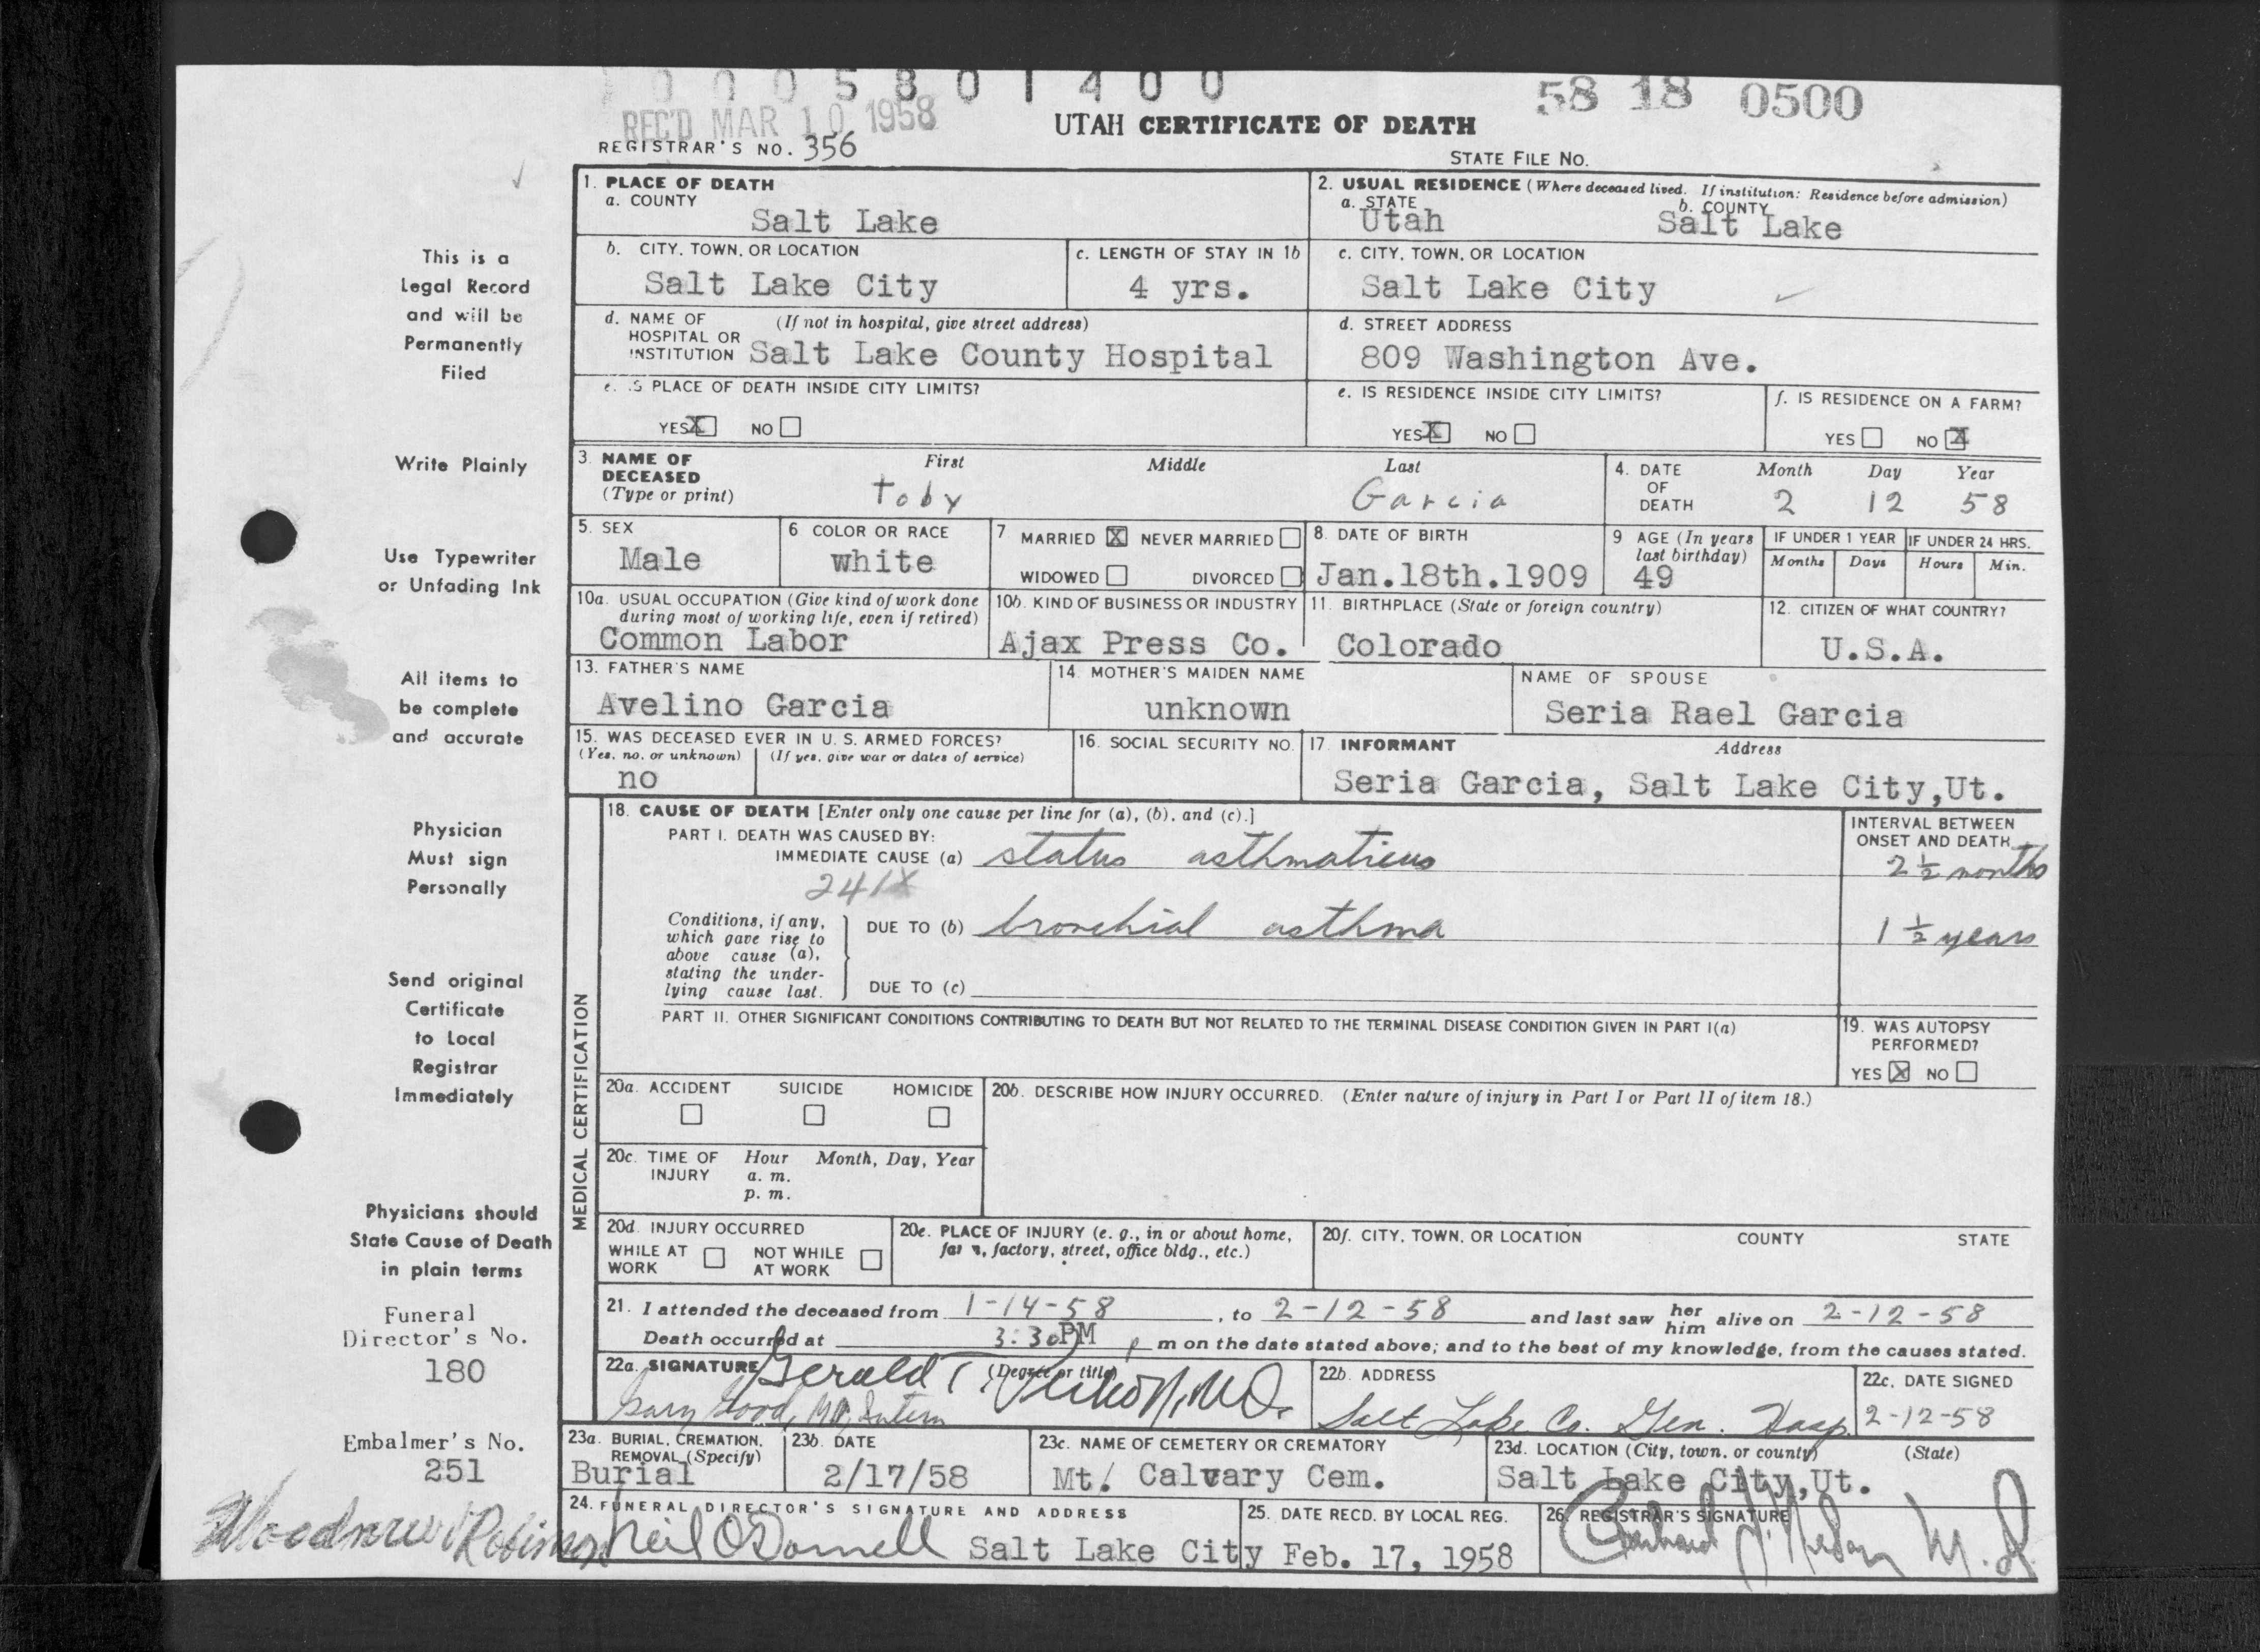 0005801400
58 18 0500
REC'D MAR 10 1958
UTAH CERTIFICATE OF DEATH
REGISTRAR'S NO. 356
STATE FILE No.
This is a
Legal Record
and will be
Permanently
Filed
Write Plainly
Use Typewriter
or Unfading Ink
All items to
be complete
and accurate
Physician
Must sign
Personally
Send original
Certificate
to Local
Registrar
Immediately
Physicians should
State Cause of Death
in plain terms
Funeral
Director's No.
180
Embalmer's No.
251
1. PLACE OF DEATH
a. COUNTY
Salt Lake
2. USUAL RESIDENCE (Where deceased lived. If institution: Residence before admission)
a. STATE b. COUNTY
Utah Salt Lake
b. CITY, TOWN, OR LOCATION
Salt Lake City
c. LENGTH OF STAY IN 1b
4 yrs.
c. CITY, TOWN, OR LOCATION
Salt Lake City
d. NAME OF (If not in hospital, give street address)
HOSPITAL OR
INSTITUTION Salt Lake County Hospital
d. STREET ADDRESS
809 Washington Ave.
e. IS PLACE OF DEATH INSIDE CITY LIMITS?
YES X NO
e. IS RESIDENCE INSIDE CITY LIMITS?
YES X NO
f. IS RESIDENCE ON A FARM?
YES NO X
3. NAME OF First Middle Last
DECEASED
(Type or print) Toby Garcia
4. DATE Month Day Year
OF
DEATH 2 12 58
5. SEX
Male
6 COLOR OR RACE
white
7 MARRIED X NEVER MARRIED
WIDOWED DIVORCED
8. DATE OF BIRTH
Jan.18th.1909
9 AGE (In years
last birthday)
49
IF UNDER 1 YEAR IF UNDER 24 HRS.
Months Days Hours Min.
10a. USUAL OCCUPATION (Give kind of work done
during most of working life, even if retired)
Common Labor
10b. KIND OF BUSINESS OR INDUSTRY
Ajax Press Co.
11. BIRTHPLACE (State or foreign country)
Colorado
12. CITIZEN OF WHAT COUNTRY?
U.S.A.
13. FATHER'S NAME
Avelino Garcia
14. MOTHER'S MAIDEN NAME
unknown
NAME OF SPOUSE
Seria Rael Garcia
15. WAS DECEASED EVER IN U. S. ARMED FORCES?
(Yes, no, or unknown) (If yes, give war or dates of service)
no
16. SOCIAL SECURITY NO.
17. INFORMANT Address
Seria Garcia, Salt Lake City,Ut.
MEDICAL CERTIFICATION
18. CAUSE OF DEATH [Enter only one cause per line for (a), (b), and (c).]
PART I. DEATH WAS CAUSED BY:
IMMEDIATE CAUSE (a) status asthmaticus
241X
INTERVAL BETWEEN
ONSET AND DEATH
2 1/2 months
Conditions, if any,
which gave rise to
above cause (a),
stating the under-
lying cause last.
DUE TO (b) bronchial asthma
1 1/2 years
DUE TO (c)
PART II. OTHER SIGNIFICANT CONDITIONS CONTRIBUTING TO DEATH BUT NOT RELATED TO THE TERMINAL DISEASE CONDITION GIVEN IN PART I(a)
19. WAS AUTOPSY
PERFORMED?
YES X NO
20a. ACCIDENT SUICIDE HOMICIDE
20b. DESCRIBE HOW INJURY OCCURRED. (Enter nature of injury in Part I or Part II of item 18.)
20c. TIME OF Hour Month, Day, Year
INJURY a. m.
p. m.
20d. INJURY OCCURRED
WHILE AT NOT WHILE
WORK AT WORK
20e. PLACE OF INJURY (e. g., in or about home,
farm, factory, street, office bldg., etc.)
20f. CITY, TOWN, OR LOCATION COUNTY STATE
21. I attended the deceased from 1-14-58, to 2-12-58 and last saw her him alive on 2-12-58
Death occurred at 3:30PM p m on the date stated above; and to the best of my knowledge, from the causes stated.
22a. SIGNATURE (Degree or title)
Gerald T. M.D.
Gary Good, MD, Intern
22b. ADDRESS
Salt Lake Co. Gen. Hosp.
22c. DATE SIGNED
2-12-58
23a. BURIAL, CREMATION,
REMOVAL (Specify)
Burial
23b. DATE
2/17/58
23c. NAME OF CEMETERY OR CREMATORY
Mt. Calvary Cem.
23d. LOCATION (City, town, or county) (State)
Salt Lake City,Ut.
24. FUNERAL DIRECTOR'S SIGNATURE AND ADDRESS
Neil O'Donnell Salt Lake City
25. DATE RECD. BY LOCAL REG.
Feb. 17, 1958
26. REGISTRAR'S SIGNATURE
M.D.